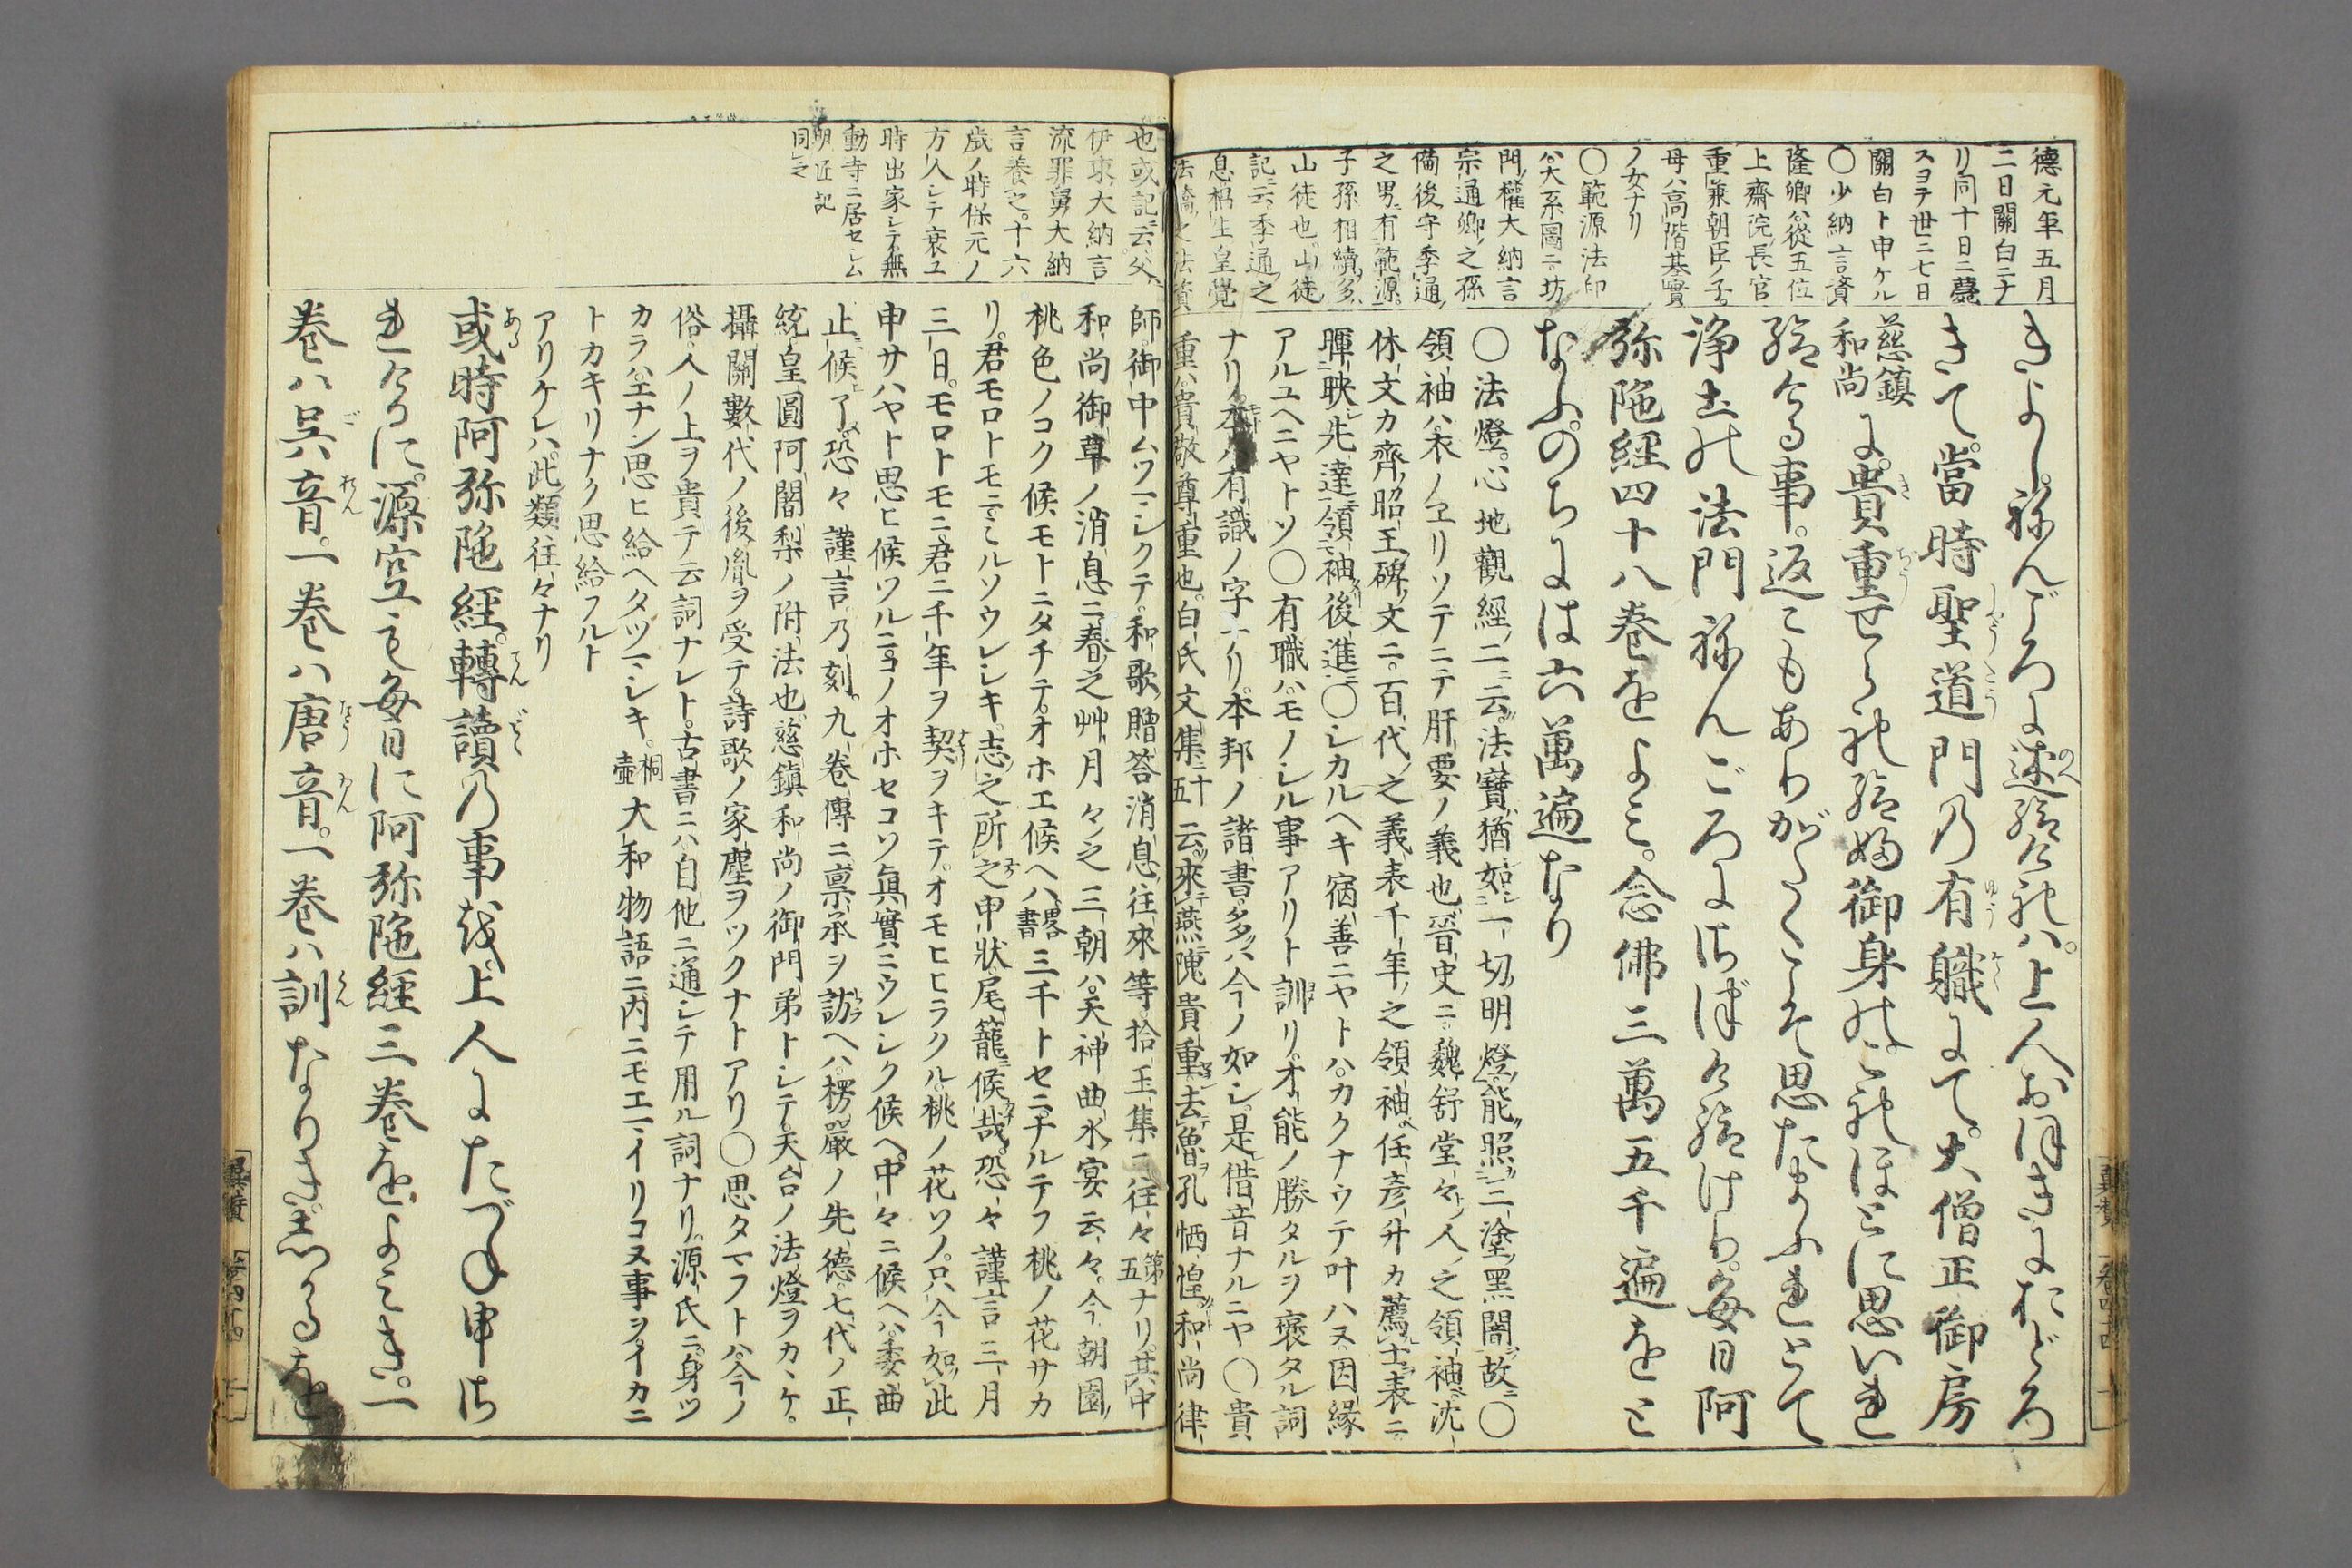 徳元年五月
二日關白ニナ
リ同十日ニ薨
スヨテ世ニ七日
關白ト申ケル
○少納言資
隆卿ハ從五位
上齋院長官
重兼朝臣ノ子
母ハ高階基實
ノ女ナリ
○範源法印
ハ大系圖ニ坊
門權大納言
宗通卿之孫
備後守季通
之男有範源
子孫相續多
山徒也山徒
記云季通之
息枴生皇覺
法橋之法資
きよし。ねんごろに述給ければ。上人おほきにおどろ
きて。當時聖道門の有職にて。大僧正御房
慈鎮
和尚に。貴重せられ給御身の。これほどに思いれ
給へる事。返々もありがたくこそ思たまふれとて
淨土の法門ねんごろにさづけ給けり。毎日阿
弥陁經四十八卷をよみ。念佛三萬五千遍をと
なふ。のちには六萬遍なり
○法燈。心地觀經ノ二云。法寶猶如一切明燈。能照三塗黑闇故ニ○
領袖ハ衣ノヱリソテニテ肝要ノ義也。晉史ニ魏舒堂々人之領袖。沈
休文カ齊昭王碑文ニ。百代之義表千年之領袖。任彦升カ薦士表ニ。
暉映先達領袖後進○シカルヘキ宿善ニヤトハ。カクナウテ叶ハヌ因縁
アルユヘニヤトソ○有職ハモノシル事アリト訓リ。才能ノ勝タルヲ褒タル詞
ナリ。本ハ有識ノ字ナリ。本邦ノ諸書多ハ今ノ如シ。是借音ナルニヤ○貴
重ハ貴敬尊重也。白氏文集五十云。來燕隗貴重去魯孔恓惶。和尚律
也或記云父
伊東大納言
流罪舅大納
言養之十六
歳ノ時保元ノ
方人シテ衰ユ
時出家シテ無
動寺ニ居セシム
明匠記
同之
師。御中ムツマシクテ。和歌贈答消息往來等。拾玉集ニ往々第五ナリ。其中
和尚御草ノ消息ニ。春之艸月々之三朝ハ。天神曲水宴云々。今朝園
桃色ノコク候モトニタチテ。オホエ候ヘハ畧書三千トセニナルテフ桃ノ花サカ
リ。君モロトモニミルソウレシキ。志之所之申狀尾籠候哉。恐々謹言三月
三日。モロトモニ君ニ千年ヲ契ヲキテ。オモヒヒラクル桃ノ花ソノ。只今如此
申サハヤト思ヒ候ツルニ。ヨノオホセコソ眞實ニウレシク候ヘ。中々ニ候ヘハ委曲
止候了。恐々謹言乃刻。九卷傳ニ禀承ヲ訪ヘハ。楞嚴ノ先德七代ノ正
統皇圓阿闍梨ノ附法也。慈鎮和尚ノ御門弟トシテ。天台ノ法燈ヲカヽケ。
攝關數代ノ後胤ヲ受テ。詩歌ノ家塵ヲツクナトアリ○思タマフトハ。今ノ
俗人ノ上ヲ貴テ云詞ナレト。古書ニハ自他ニ通シテ用ル詞ナリ。源氏ニ。身ツ
カラハエナン思ヒ給ヘタツマシキ。桐壺大和物語ニ内ニモエマイリコヌ事ヲ。イカニ
トカキリナク思給フルト
アリケレハ。此類往々ナリ
或時阿弥陁經。轉讀の事を。上人にたづね申さ
れけるに。源空も毎日に阿弥陁經三卷をよみき。一
卷ハ呉音。一卷ハ唐音。一卷ハ訓なりき。しかるを